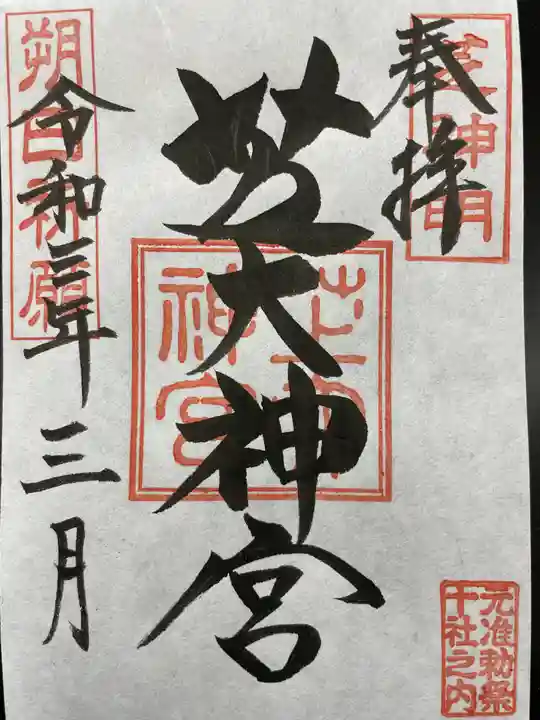 奉拝
芝神明
芝大神宮
芝大神宮
令和三年三月
朔日祈願
元准勅祭
十社之内